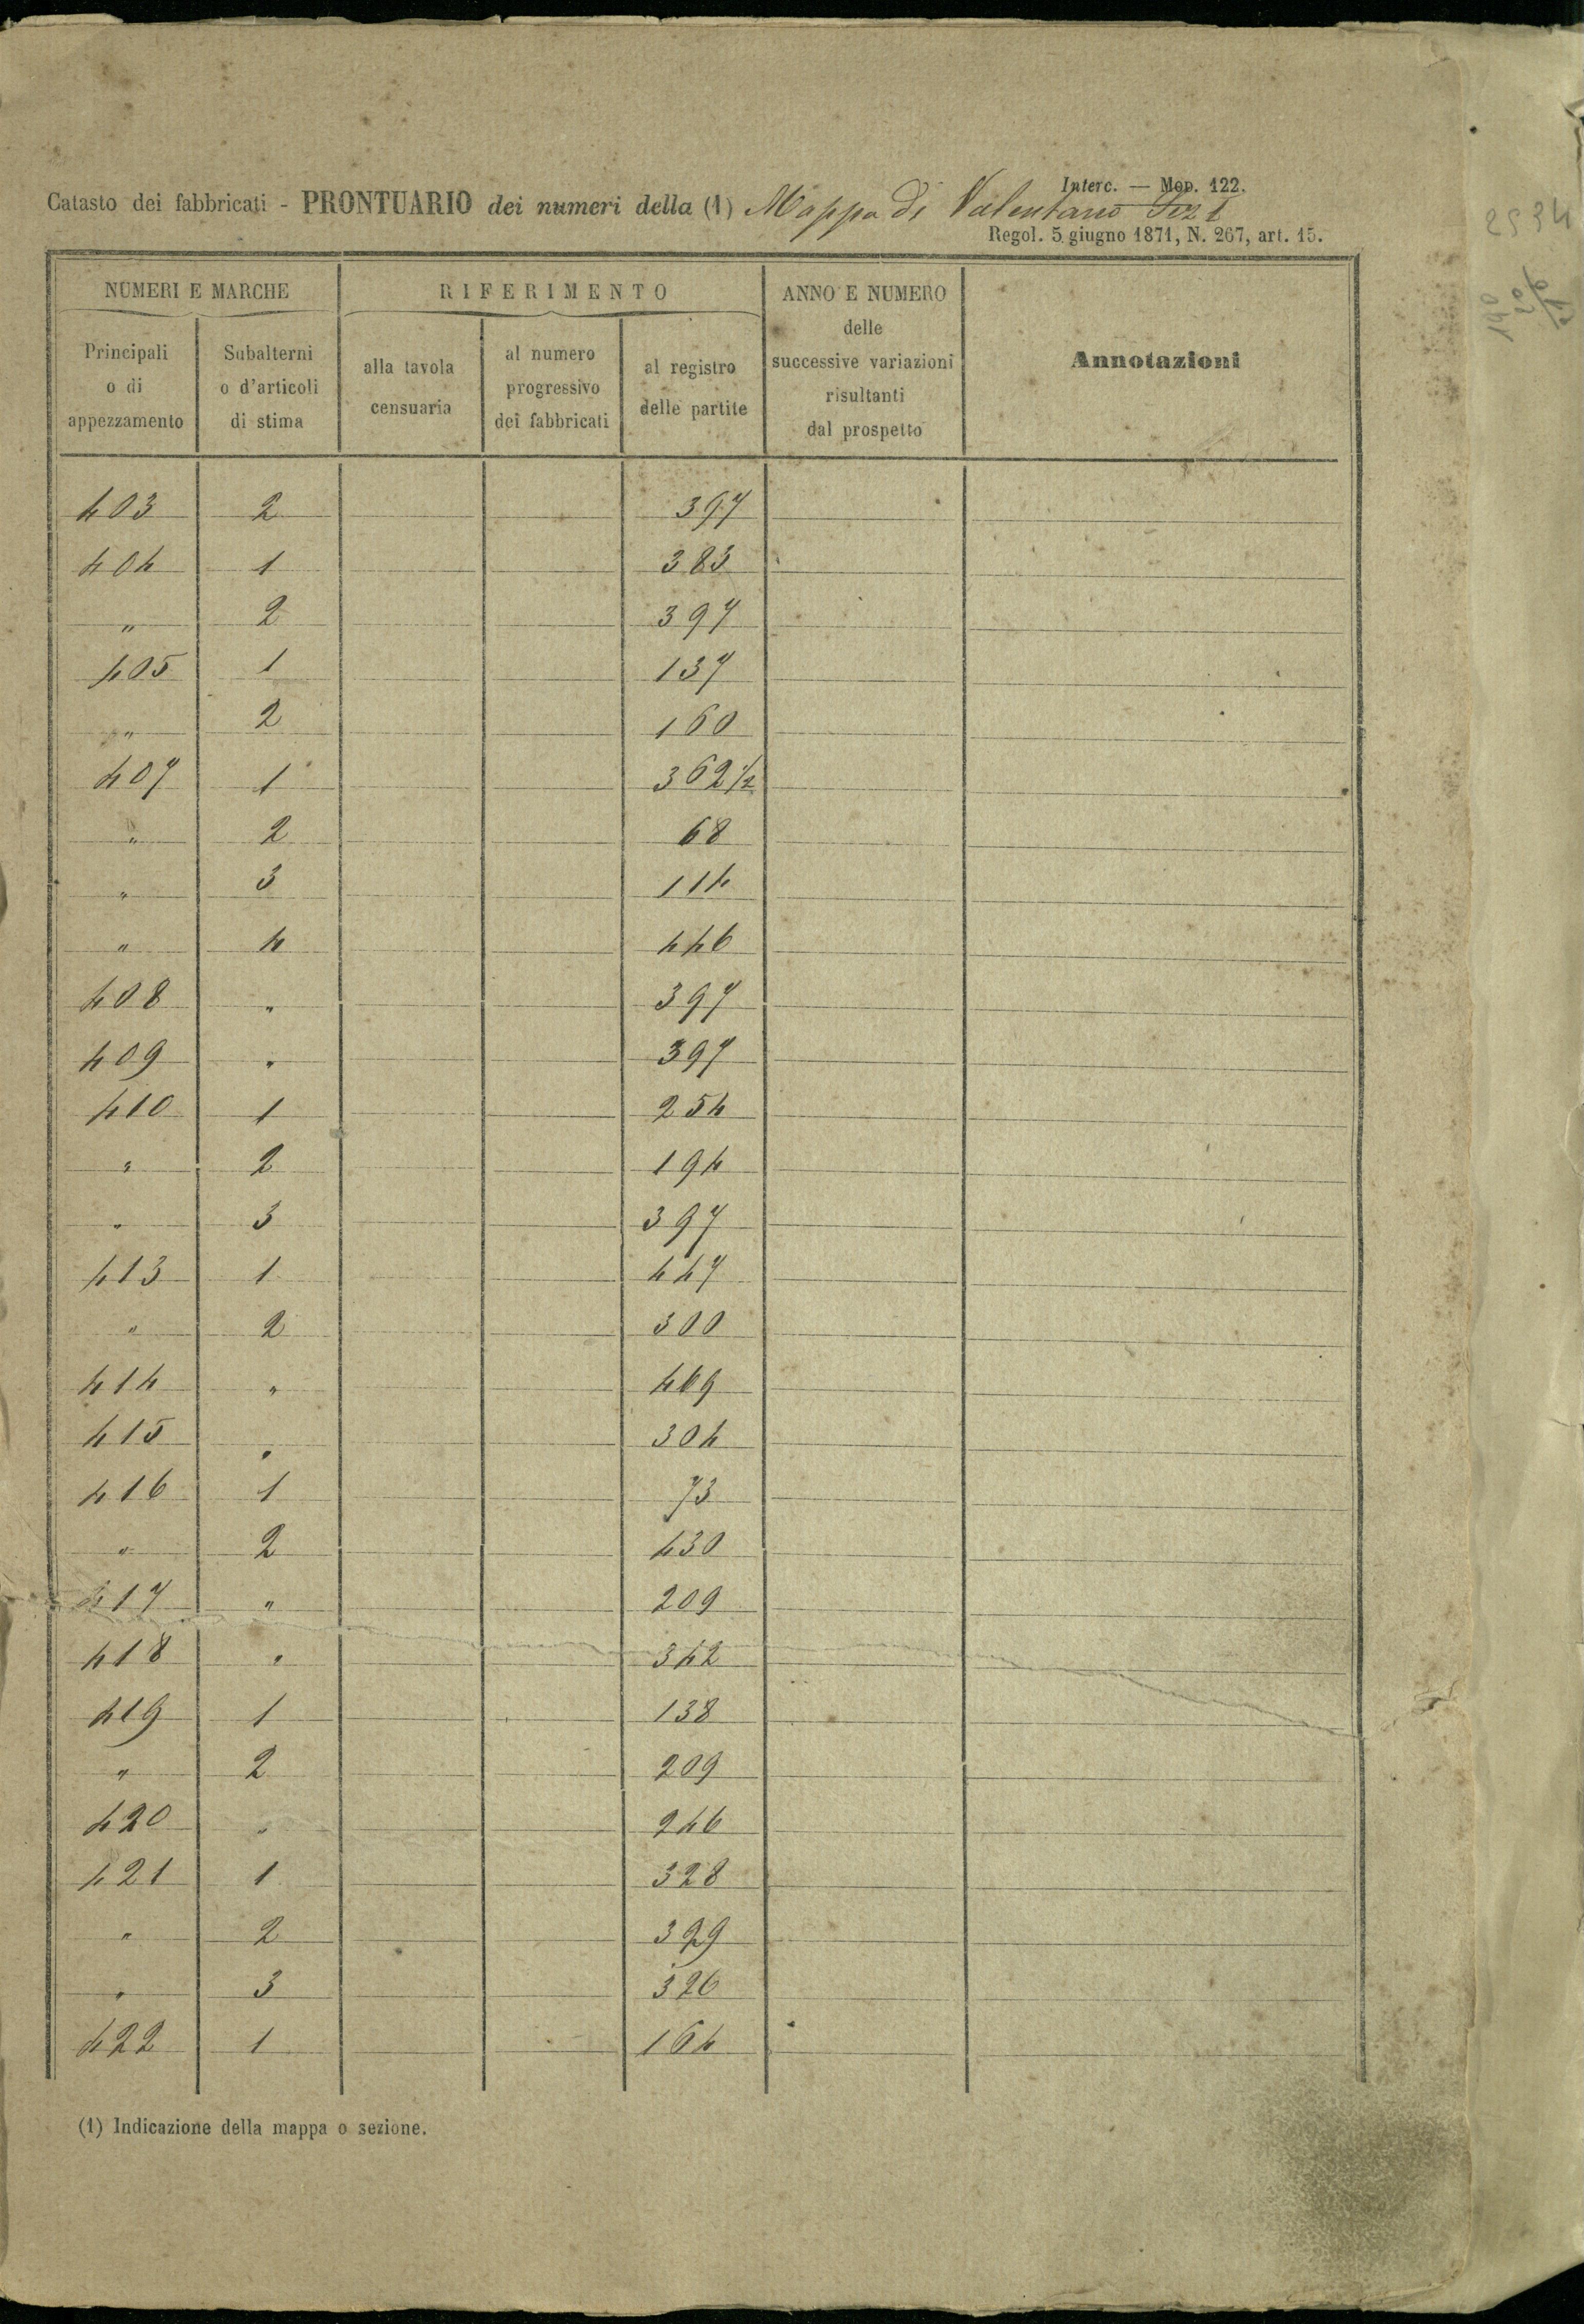 Interc. — Mop. 122.
Catasto dei fabbricati - PRONTUARIO dei numeri della (1) Mappa di Valentano Sez I
Regol. 5 giugno 1871, N. 267, art. 15.
NUMERI E MARCHE RIFERIMENTO ANNO E NUMERO delle successive variazioni risultanti dal prospetto Annotazioni
Principali o di appezzamento Subalterni o d'articoli di stima alla tavola censuaria al numero progressivo dei fabbricati al registro delle partite
403 2 397
404 1 383
" 2 397
405 1 137
" 2 160
407 1 362 1/2
" 2 68
" 3 114
" 4 446
408 " 397
409 " 397
410 1 254
" 2 194
" 3 397
413 1 447
" 2 300
414 " 469
415 " 304
416 1 73
" 2 430
417 " 209
418 " 342
419 1 138
" 2 209
420 " 246
421 1 328
" 2 329
" 3 326
422 1 164
(1) Indicazione della mappa o sezione.
2534
140